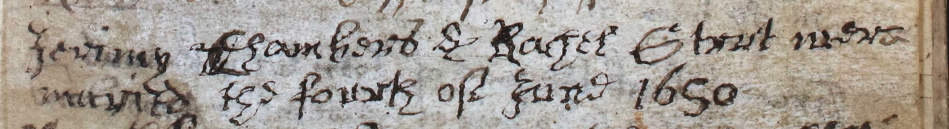 Jerimy Chambers & Rachel Strut were
maried the fourth of June 1650